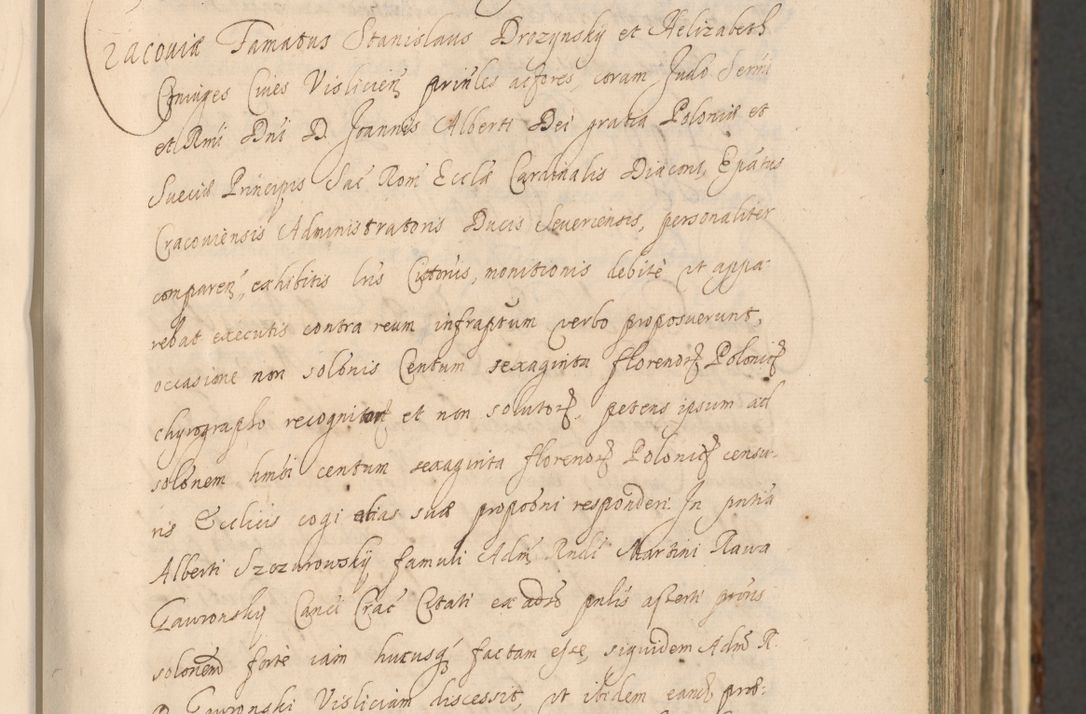 Cracoviæ Famatus Stanislaus Drozynsky et Helizabeth
Coniuges Cives Vislicien̄ prinles actores, coram Judo Sermi
et Rmi Dni D. Joannis Alberti Dei gratia Poloniæ et
Sueciæ Principis Sac Rom Ecclæ Cardinalis Diaconi, Epatus
Cracoviensis Administratoris Ducis Severiensis, personaliter
comparen̄, exhibitis lris Citoriis, monitionis debitè ut appa-
rebat executis contra reum infraptum verbo proposuerunt,
occasione non solonis Centum sexaginta florenorꝝ Polonicꝝ
chyrographo recognitorꝝ et non solutorꝝ, petens ipsum ad
solonem hmoi centum sexaginta florenorꝝ Polonicꝝ censu-
ris Ecclicis cogi alias suæ propoōni responderi. In pntia
Alberti Szczurowsky famuli Adm Rndi Martini Rawa
Gawronsky Canci Crac Citati ex adso pnlis asserti prōris
solonem fortè iam hucusqꝫ factam esse, siquidem Adm R.
D. Gawronski Visliciam discessit, ut ibidem eand pro-